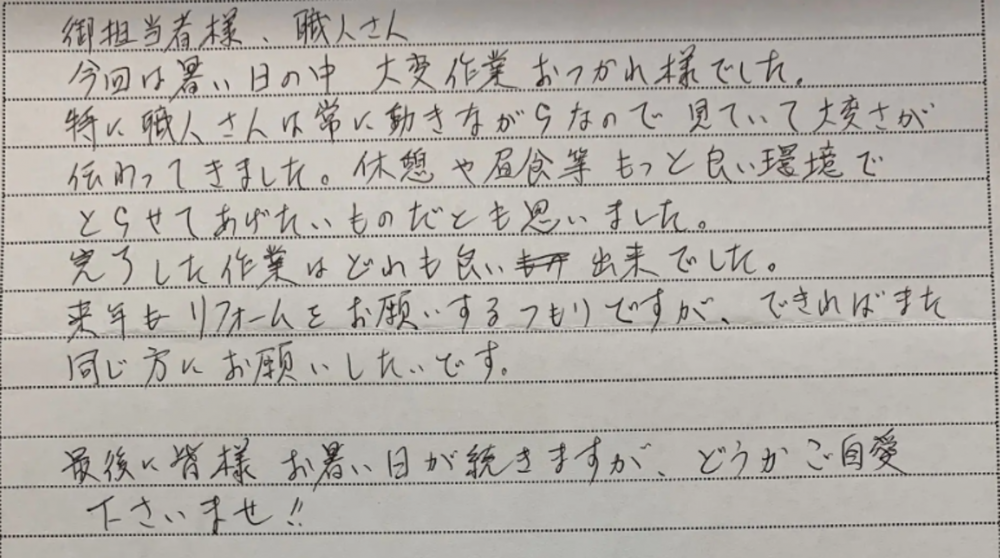 御担当者様、職人さん
今回は暑い日の中 大変作業おつかれ様でした。
特に職人さんは常に動きながらなので見ていて大変さが
伝わってきました。休憩や昼食等もっと良い環境で
とらせてあげたいものだとも思いました。
完了した作業はどれも良い出来でした。
来年もリフォームをお願いするつもりですが、できればまた
同じ方にお願いしたいです。
最後に皆様 お暑い日が続きますが、どうかご自愛
下さいませ!!